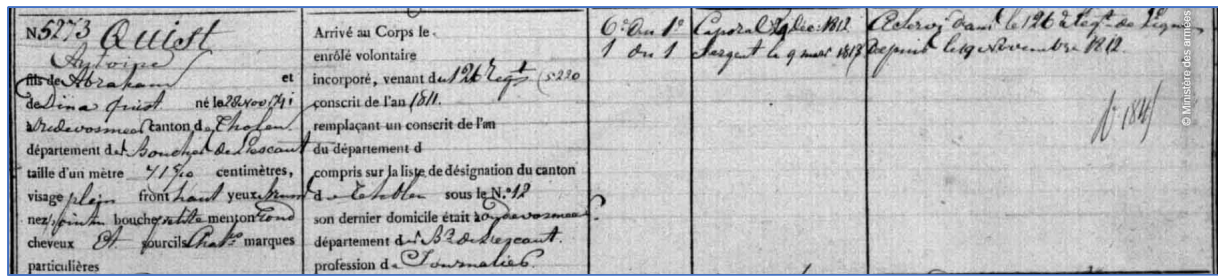 N. 5273 Quist
Antoine
fils de Abraham et
de Dina Quist né le 28 Nov 1791
à canton de Tholen
département des Bouches de l'escaut
taille d'un mètre 71 centimètres,
visage plein front haut yeux
nez pointu bouche petite menton rond
cheveux Et sourcils Chat.ns marques
particulières
Arrivé au Corps le
enrôlé volontaire
incorporé, venant du 126 Regt (5220
conscrit de l'an 1811.
remplaçant un conscrit de l'an
du département d
compris sur la liste de désignation du canton
de Tholen sous le N.° 12
son dernier domicile était à
département des B.es de l'escaut.
profession de Journalier.
6.e du 1.e
1 du 1
Caporal déc. 1812
Sergent le 9 mai 1813
A servi dans le 126.e Regt. de Ligne
depuis le 19 Novembre 1812.
© Ministère des armées